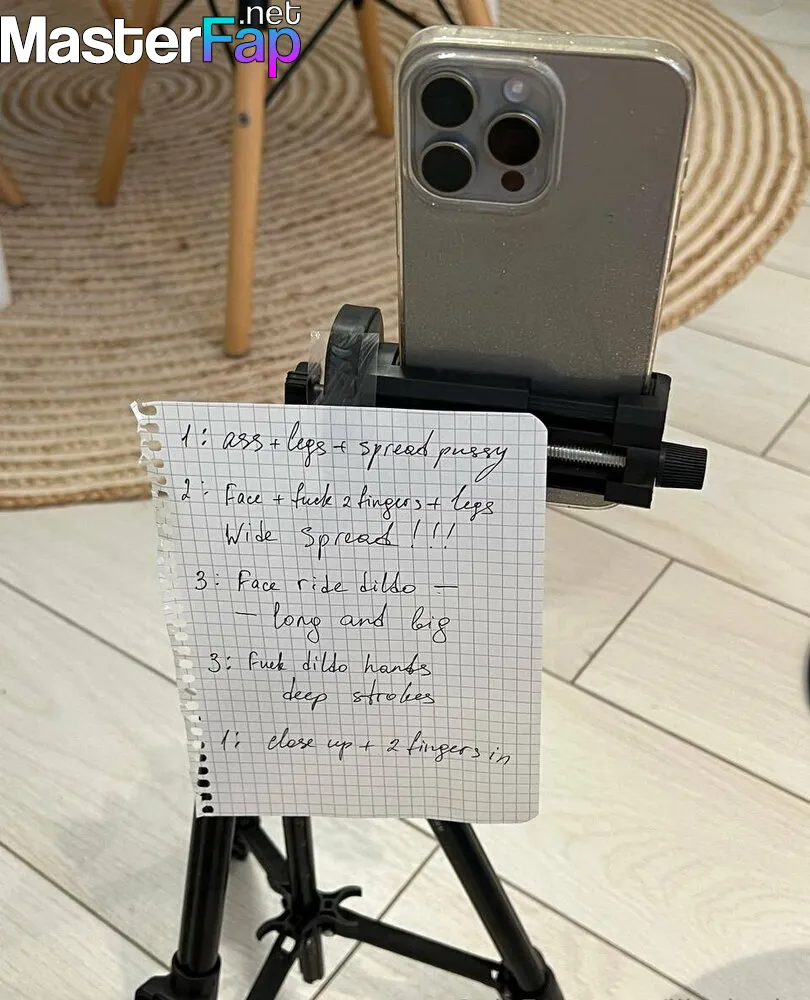 MasterFap.net
1: ass + legs + spread pussy
2: Face + fuck 2 fingers + legs
Wide spread!!!
3: Face ride dildo —
— long and big
3: Fuck dildo hands
deep strokes
1: close up + 2 fingers in